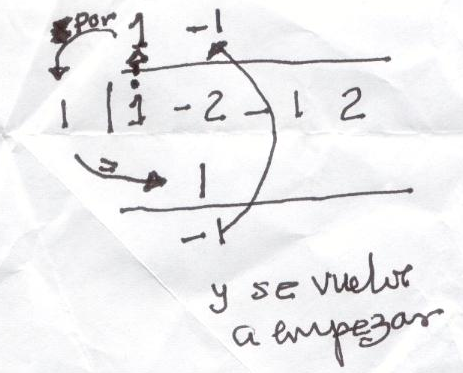 por 1 -1
1 | 1 - 2 - 1 2
= 1
-1
y se vuelve
a empezar